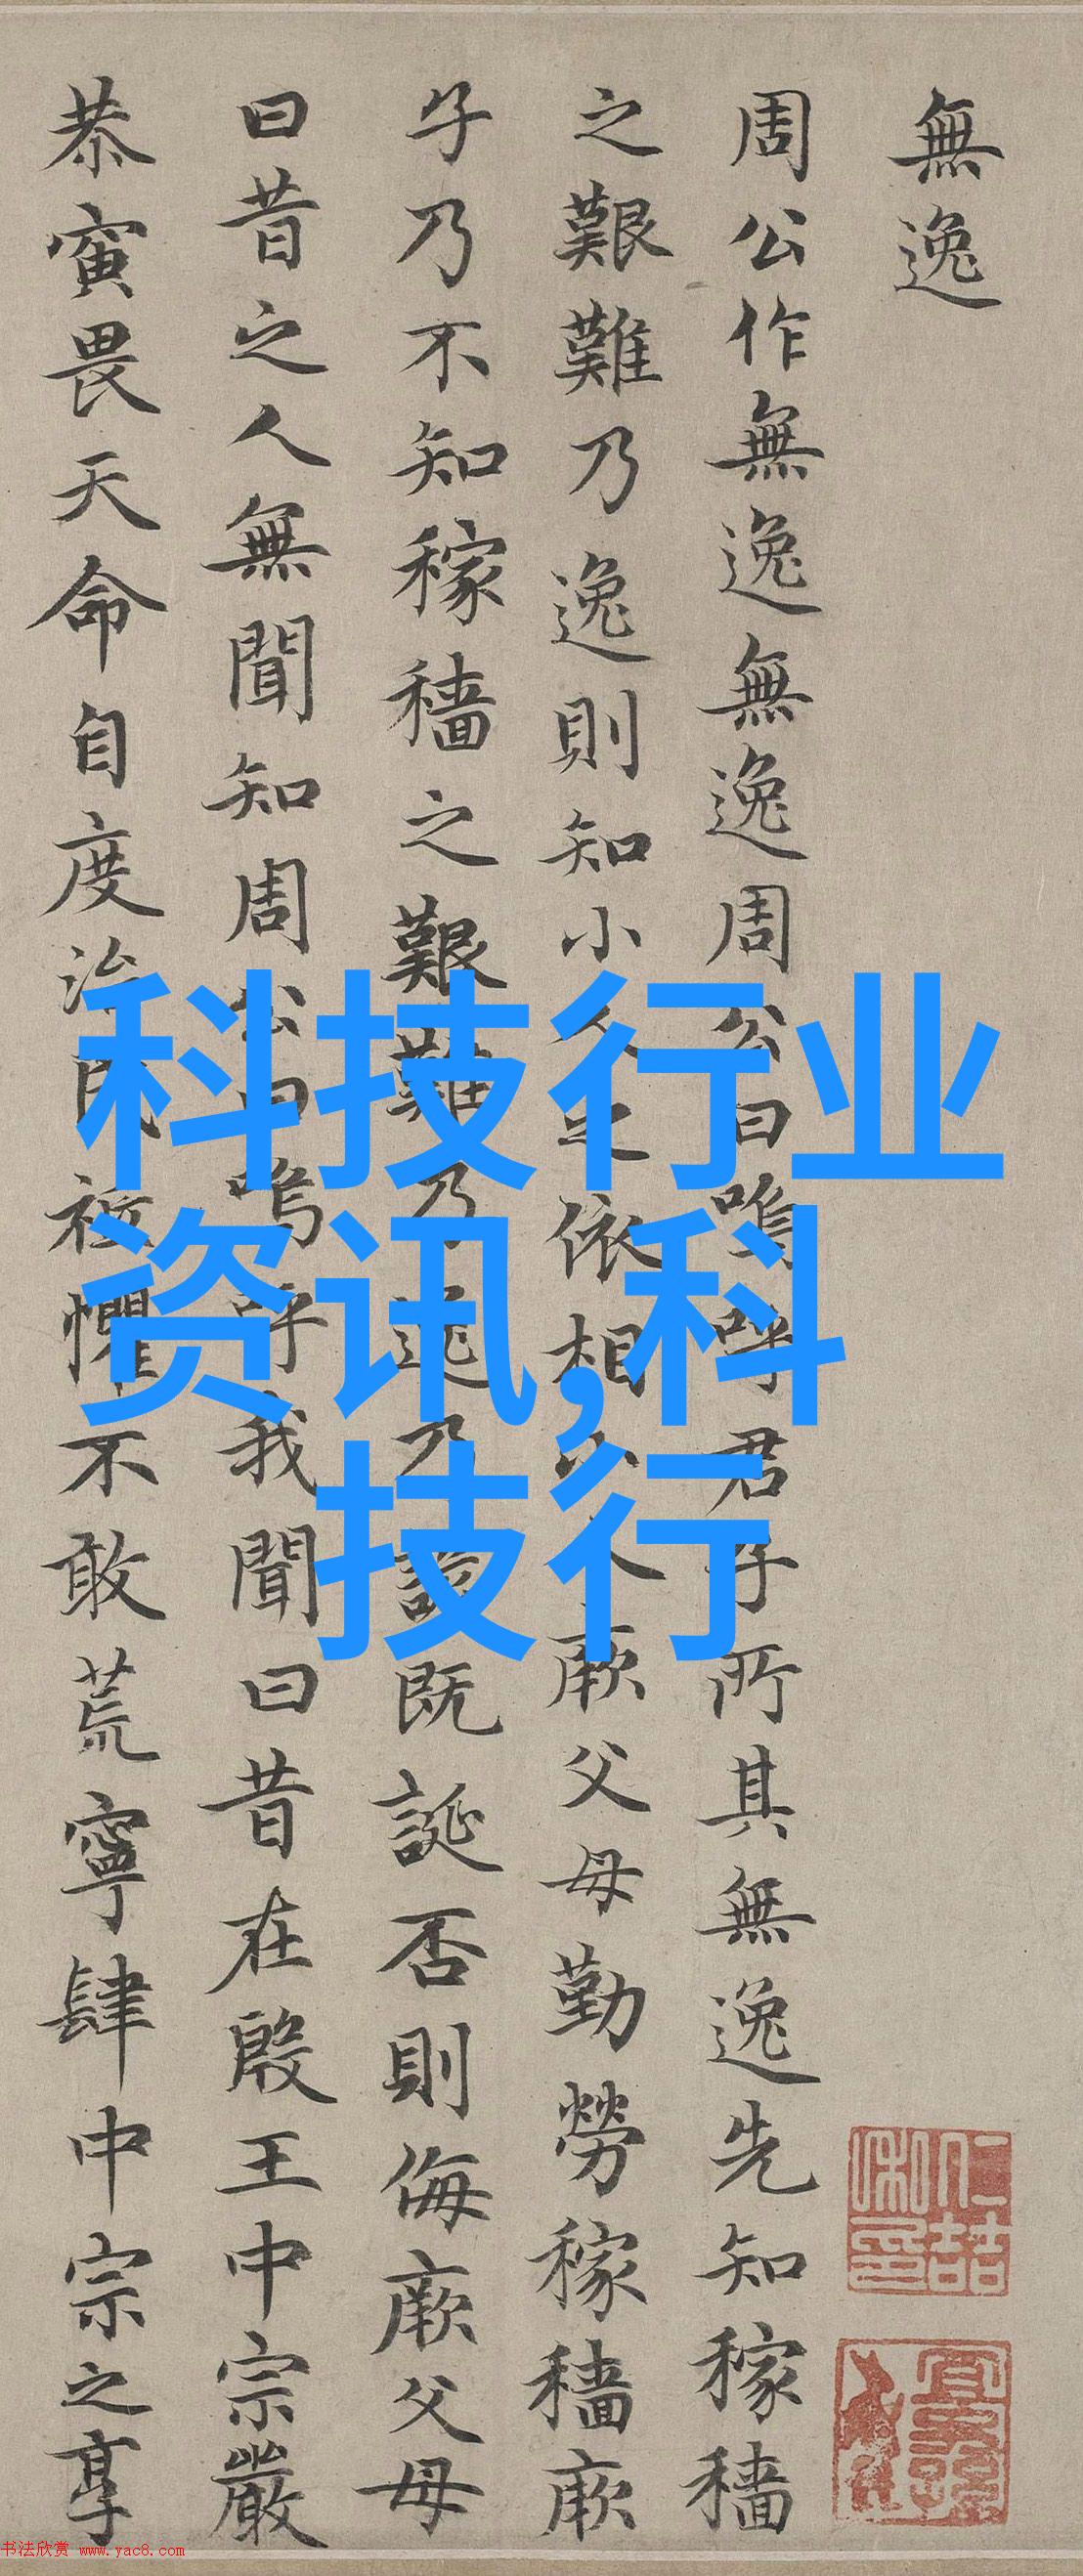 無逸
周公作無逸無逸周公曰嗚呼君子所其無逸先知稼穡
之艱難乃逸則知小人之依相小人厥父母勤勞稼穡厥
子乃不知稼穡之艱難乃逸乃諺既誕否則侮厥父母
曰昔之人無聞知周公曰嗚呼我聞曰昔在殷王中宗嚴
恭寅畏天命自度治民祗懼不敢荒寧肆中宗之享
科技行业
资讯,科
技行
书法欣赏 www.yac8.com